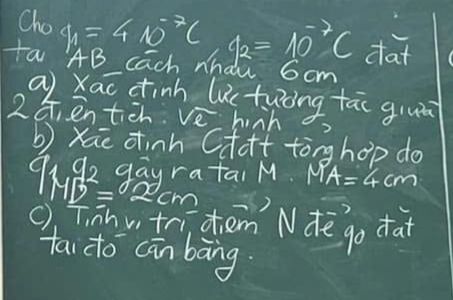 Cho q₁ = 4 10⁻⁷C q₂ = 10⁻⁷C đặt
tại AB cách nhau 6cm
a) Xác định lực tương tác giữa
2 điện tích. Vẽ hình
b) Xác định Cđđt tổng hợp do
q₁ q₂ gây ra tại M. MA = 4cm
MB = 2cm
c) Tính vị trí điểm N để q₀ đặt
tại đó cân bằng.